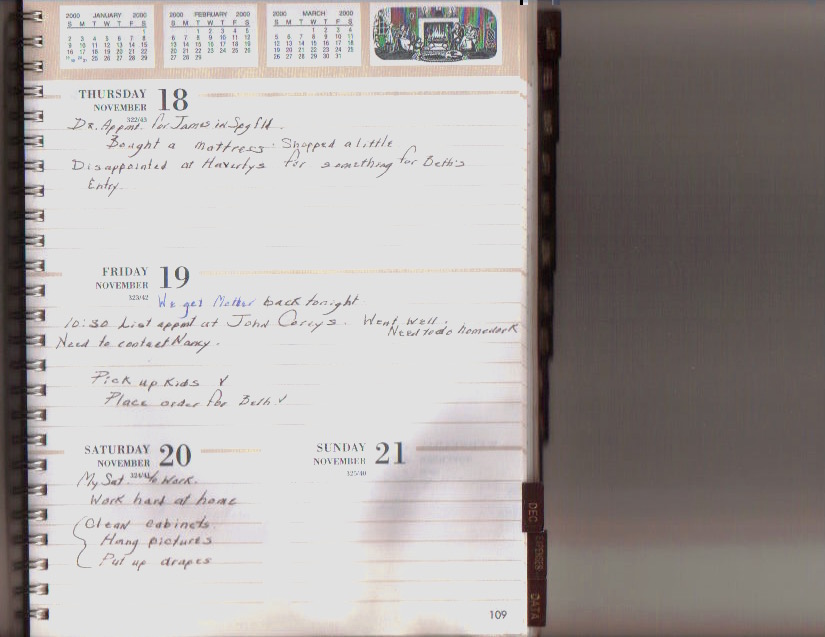 2000 JANUARY 2000
S M T W T F S
1
2 3 4 5 6 7 8
9 10 11 12 13 14 15
16 17 18 19 20 21 22
23/30 24/31 25 26 27 28 29
2000 FEBRUARY 2000
S M T W T F S
1 2 3 4 5
6 7 8 9 10 11 12
13 14 15 16 17 18 19
20 21 22 23 24 25 26
27 28 29
2000 MARCH 2000
S M T W T F S
1 2 3 4
5 6 7 8 9 10 11
12 13 14 15 16 17 18
19 20 21 22 23 24 25
26 27 28 29 30 31
THURSDAY 18
NOVEMBER
322/43
Dr. Appmt. for James in Spgfld.
Bought a mattress. Shopped a little
Disappointed at Haverlys for something for Beth's
Entry.
FRIDAY 19
NOVEMBER
323/42
We get Mother back tonight
10:30 List appmt at John Corrys. Went well.
Need to do homework
Need to contact Nancy.
Pick up kids ✓
Place order for Beth ✓
SATURDAY 20
NOVEMBER
324/41
My Sat. to work.
Work hard at home
Clean cabinets
Hang pictures
Put up drapes
SUNDAY 21
NOVEMBER
325/40
DEC
EXPENSES
DATA
109